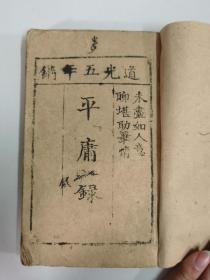 道光五年鐫
未盡如人意
聊堪助筆情
平庸錄